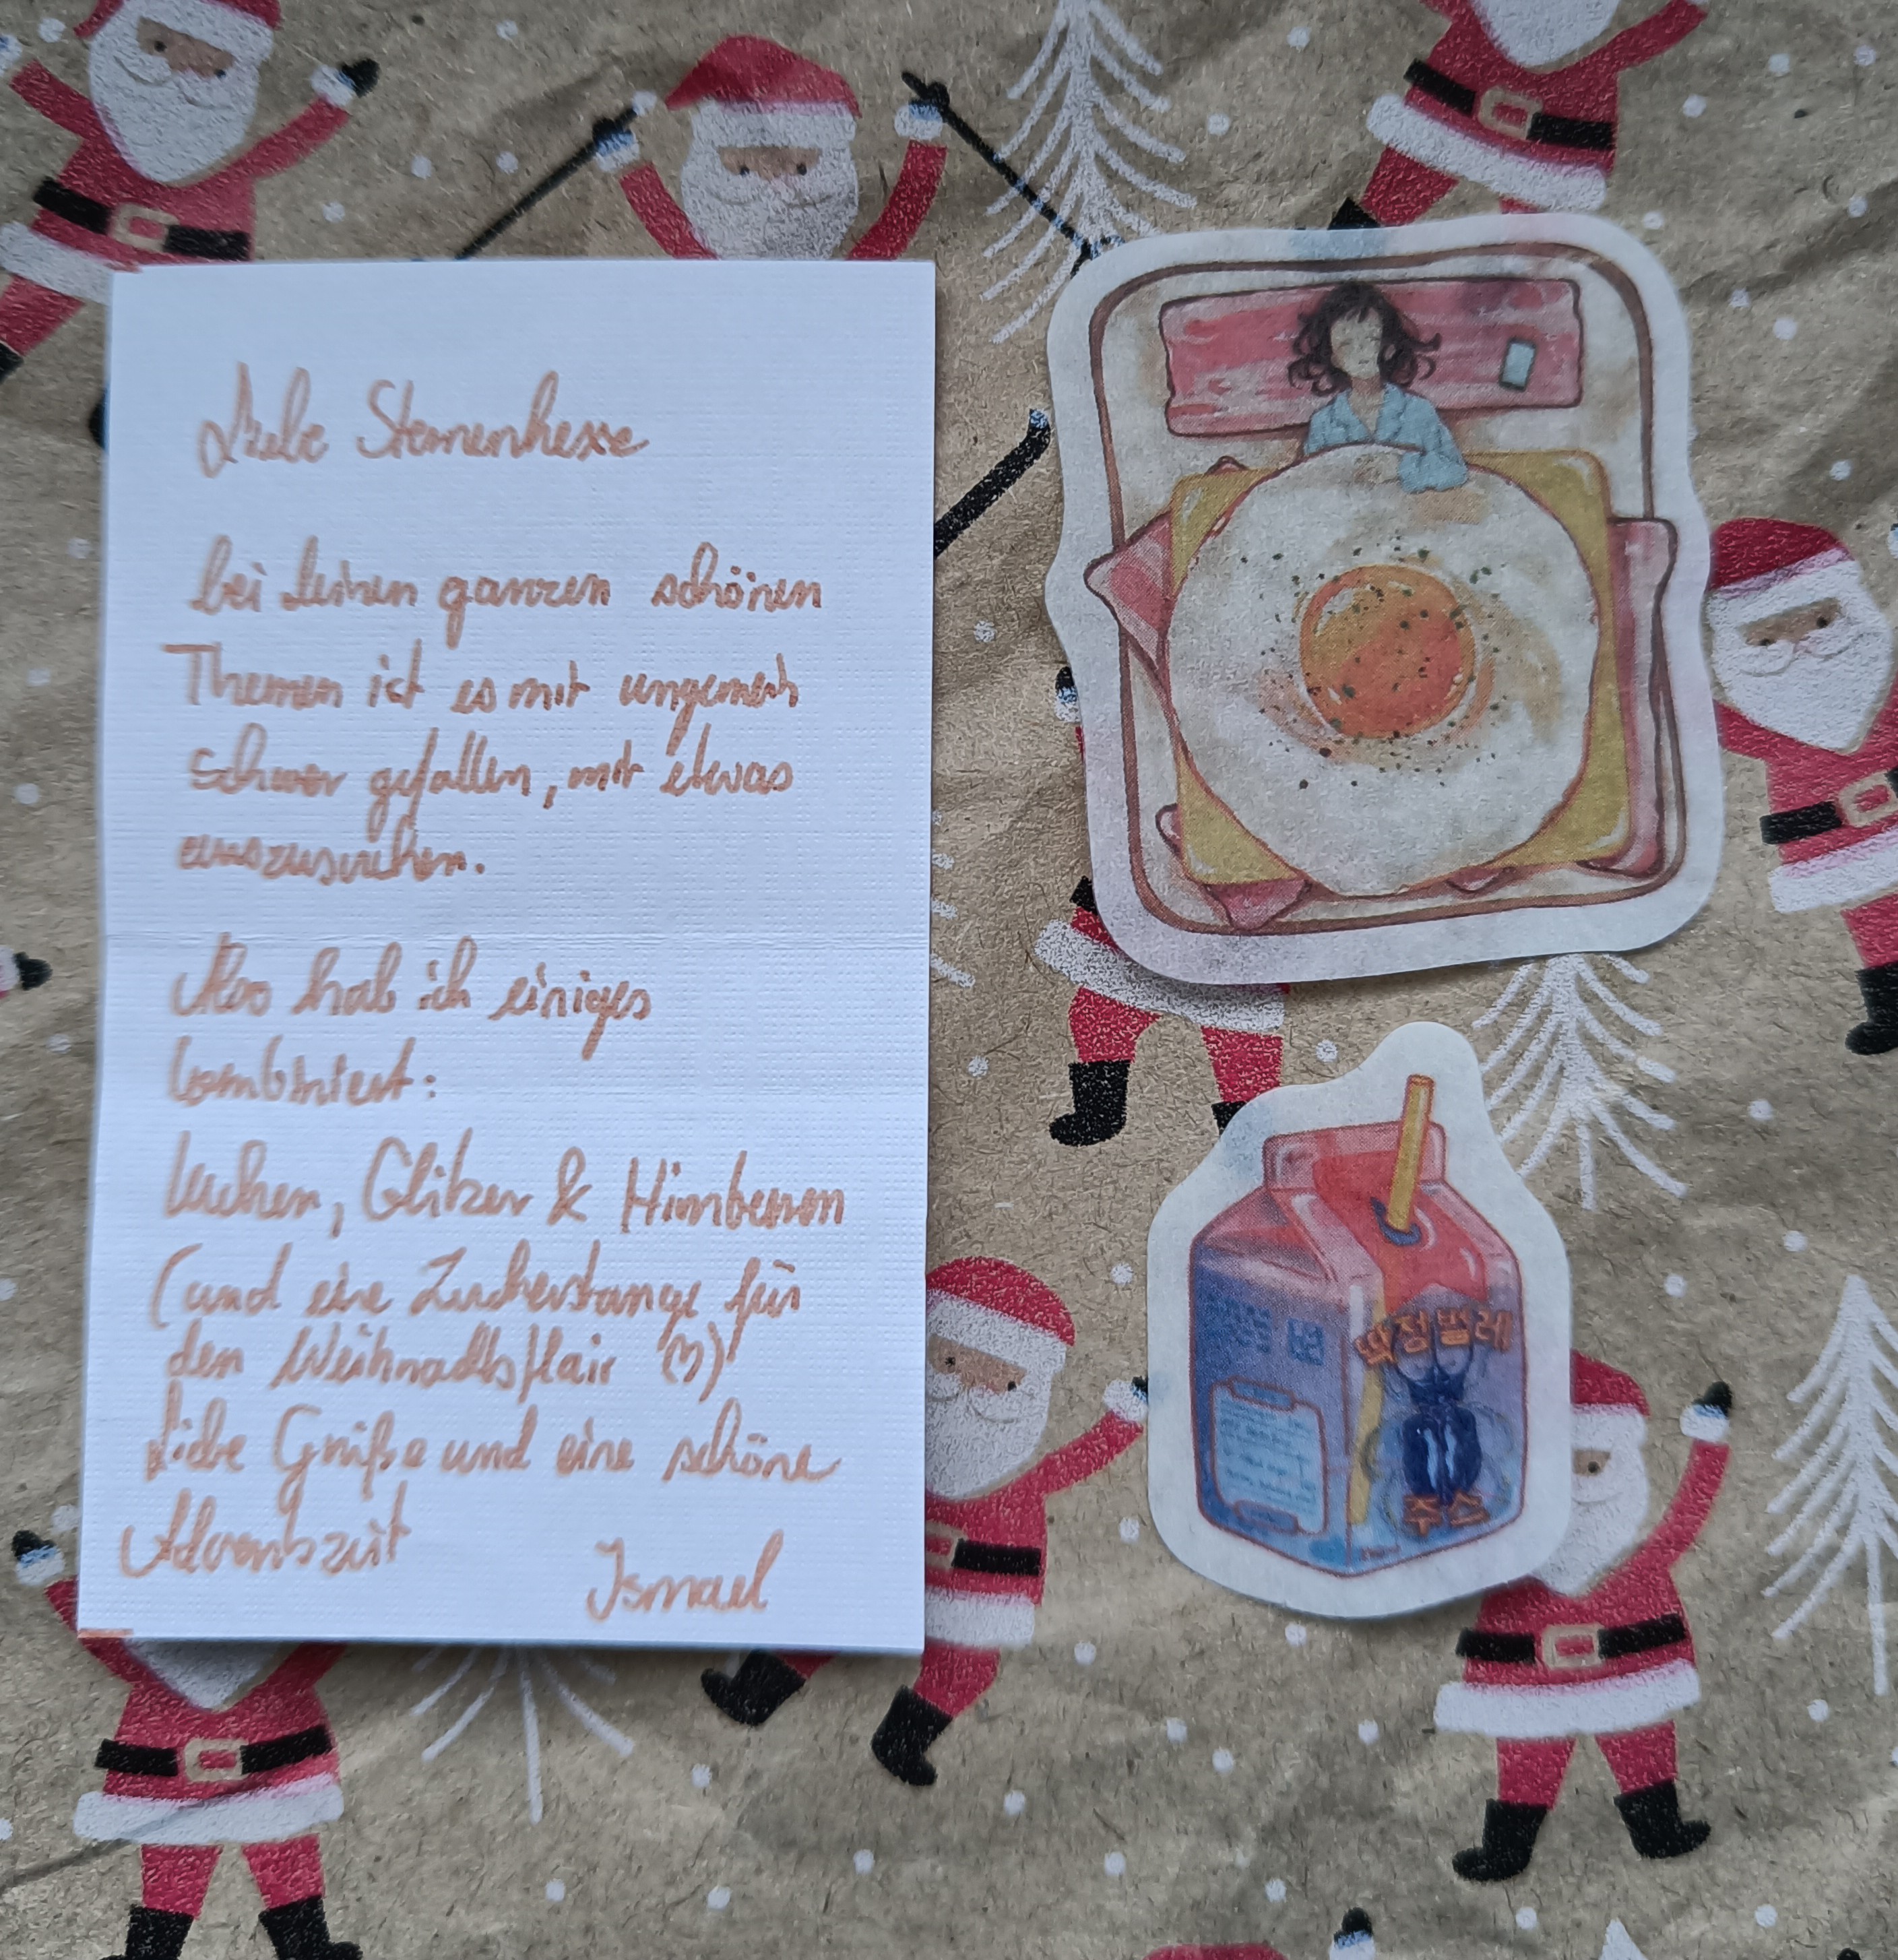 Liebe Sternenhexe
bei deinen ganzen schönen
Themen ist es mir ungemein
schwer gefallen, mir etwas
auszusuchen.
Also hab ich einiges
kombiniert:
Kuchen, Glitzer & Himbeeren
(und eine Zuckerstange für
den Weihnachtsflair ♡)
Liebe Grüße und eine schöne
Adventszeit
Ismael
딱정벌레
주스